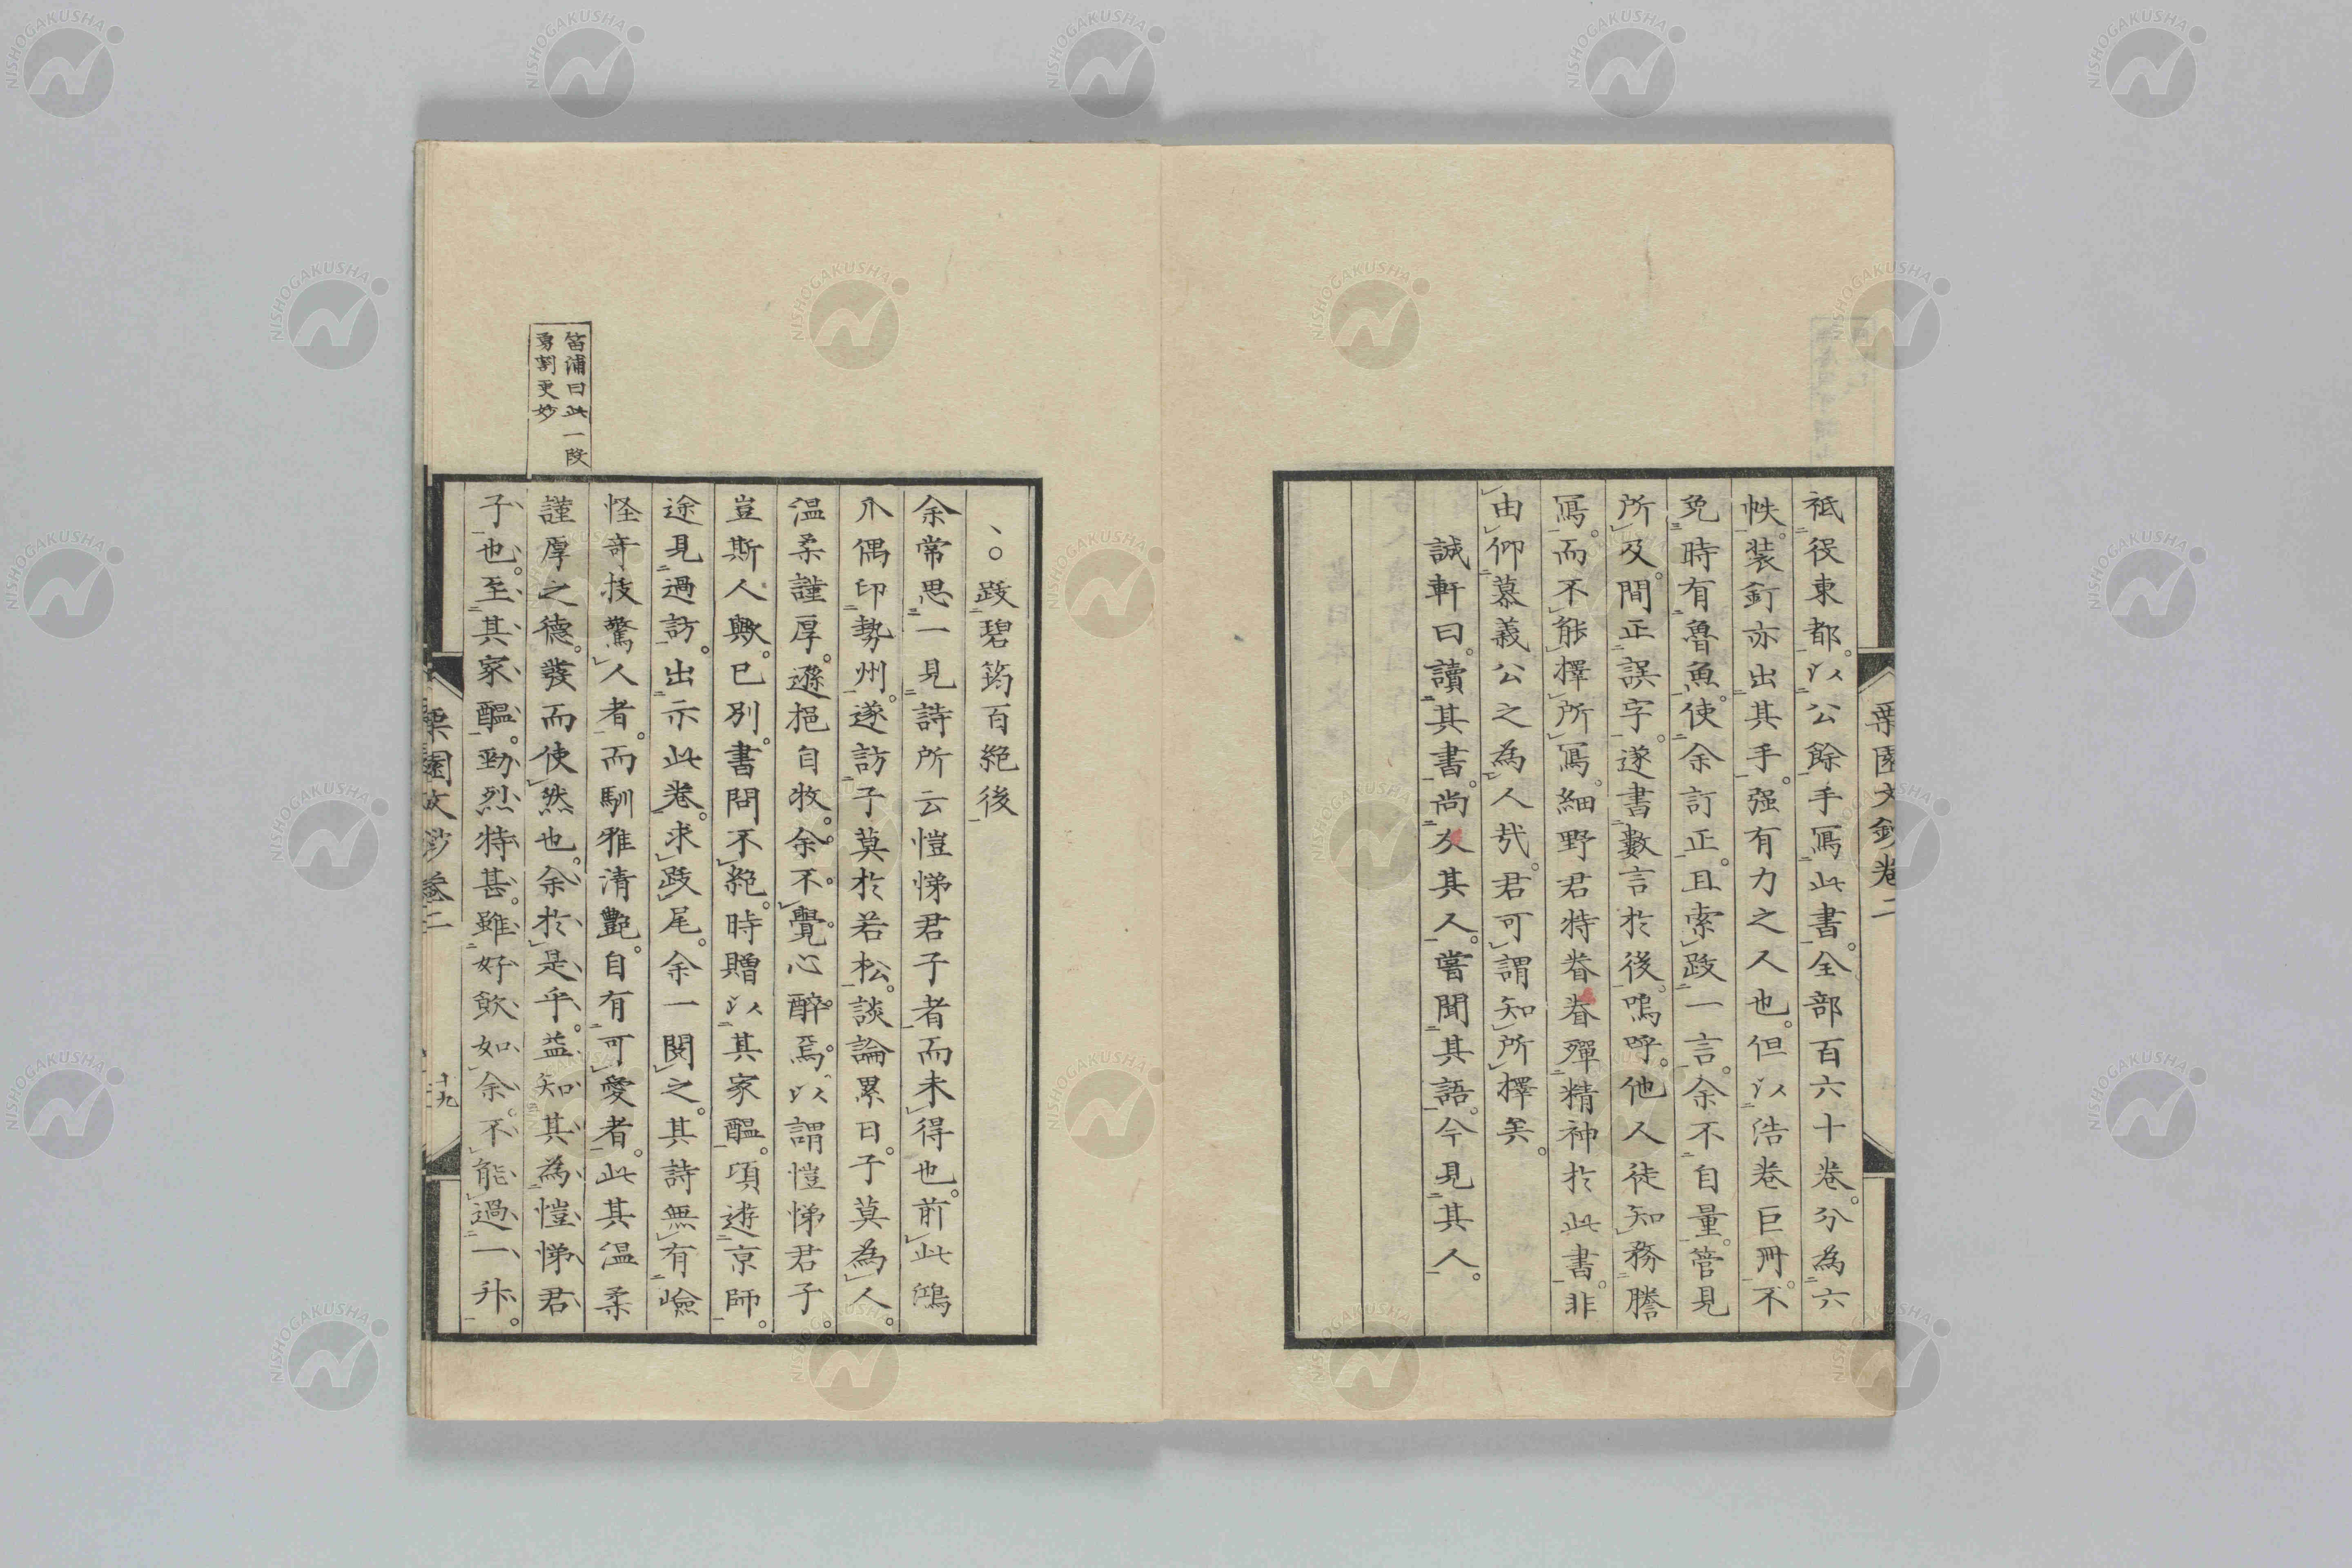 栗園文鈔卷二
祗役東都。以公餘手寫此書。全部百六十卷。分為六
帙。装釘亦出其手。强有力之人也。但以浩卷巨冊。不
免時有魯魚。使余訂正。且索跋一言。余不自量。管見
所及。間正誤字。遂書數言於後。嗚呼。他人徒知務謄
寫。而不能擇所寫。細野君特眷眷殫精神於此書。非
由仰慕義公之為人㢤。君可謂知所擇矣。
誠軒曰。讀其書。尚友其人。嘗聞其語。今見其人。
、○跋碧筠百絕後
余常思一見詩所云愷悌君子者而未得也。前此鴻
爪偶印勢州。遂訪子莫於若松。談論累日。子莫為人。
温柔謹厚。遜挹自牧。余不覺心醉焉。以謂愷悌君子。
豈斯人歟。已別。書問不絕。時贈以其家醞。頃遊京師。
途見過訪。出示此卷。求跋尾。余一閱之。其詩無有嶮
怪奇技驚人者。而馴雅清艷。自有可愛者。此其温柔
謹厚之德。發而使然也。余於是乎。益知其為愷悌君
子也。至其家醞。勁烈特甚。雖好飲如余。不能過一升。
笛浦曰此一段
勇割更妙
栗園文鈔卷二
十九
NISHOGAKUSHA